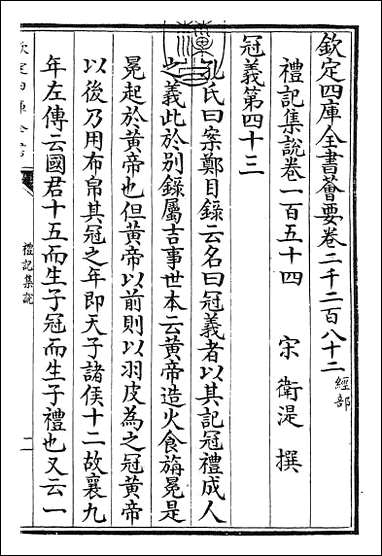 欽定四庫全書薈要卷二千二百八十二 經部
禮記集說卷一百五十四 宋 衛湜 撰
冠義第四十三
孔氏曰案鄭目錄云名曰冠義者以其記冠禮成人
之義此於別錄屬吉事世本云黃帝造火食旃冕是
冕起於黃帝也但黃帝以前則以羽皮為之冠黃帝
以後乃用布帛其冠之年即天子諸侯十二故襄九
年左傳云國君十五而生子冠而生子禮也又云一
禮記集說